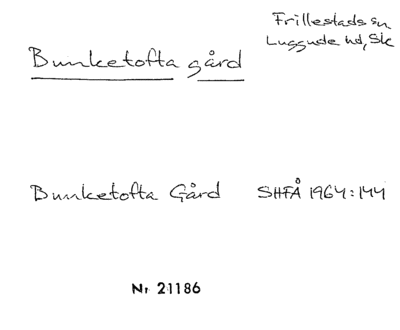 Frillestads sn
Luggude hd, Sk
Bunketofta gård
Bunketofta Gård SHFÅ 1964:144
Nr 21186